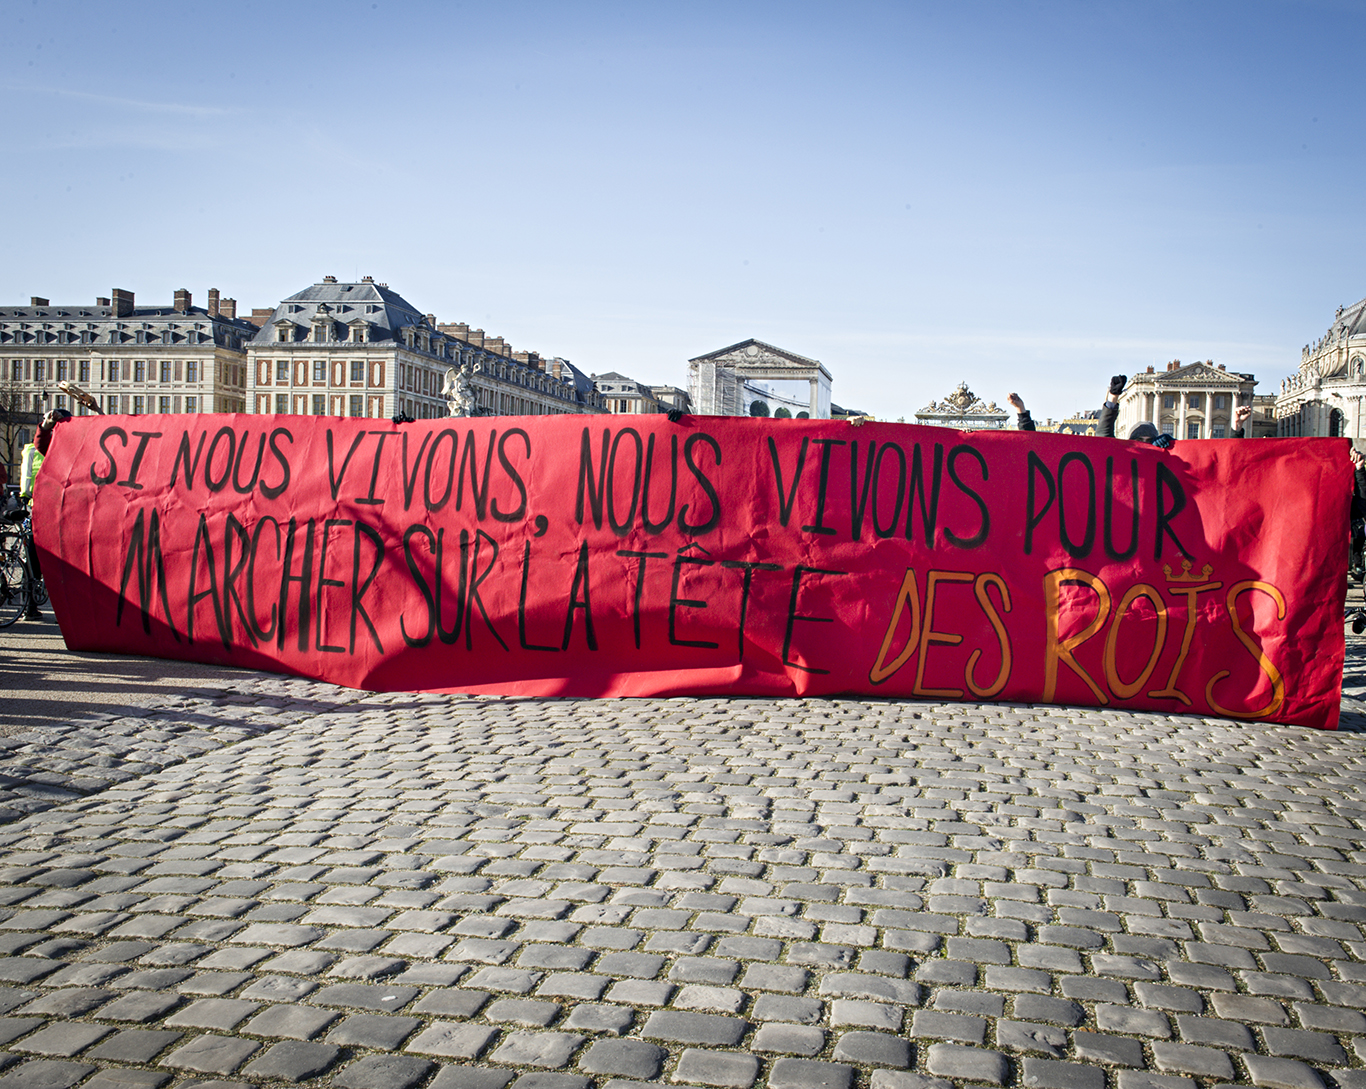 SI NOUS VIVONS, NOUS VIVONS POUR
MARCHER SUR LA TÊTE DES ROIS